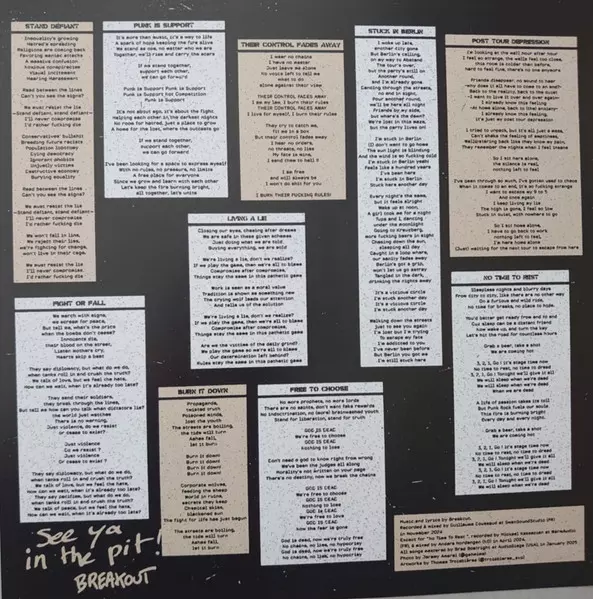 STAND DEFIANT
Inequality's growing
Hatred's spreading
Religions are coming back
Favoring mental attacks
A massive confusion
Anxious conspiracies
Visual incitement
Hearing harassment
Read between the lines
Can't you see the signs?
We must resist the lie
-Stand defiant, stand defiant-
I'll never compromise
I'd rather fucking die
Conservatives' bullshit
Breaking future rockets
Population lobotomy
Lying democracy
Ignorant phobists
Unjustly victims
Destructive economy
Burying equality
Read between the lines
Can't you see the signs?
We must resist the lie
-Stand defiant, stand defiant-
I'll never compromise
I'd rather fucking die
We won't fall in line,
We reject their lies,
we're fighting for change,
won't live in their cage.
We must resist the lie
I'll never compromise
I'd rather fucking die
PUNK IS SUPPORT
It's more than music, it's a way to life
A spark of hope keeping the fire alive
We stand as one, no matter who we are
Together, we'll rise and carry the scars
If we stand together,
support each other,
we can go forward
Punk is Support Punk is Support
Punk is Support not Competition
Punk is Support
It's not about ego, it's about the fight,
Helping each other in the darkest nights
No room for hatred, just a place to grow
A home for the lost, where the outcasts go
If we stand together,
support each other,
we can go forward
I've been looking for a space to express myself
With no rules, no pressure, no limits
A free place for everyone
Since we grow and learn with each other
Let's keep the fire burning bright,
all together, let's unite
THEIR CONTROL FADES AWAY
I wear no chains
I have no master
Just leave me alone
No voice left to tell me
what to do
alone against their view
THEIR CONTROL FADES AWAY
I am my law, I burn their rules
THEIR CONTROL FADES AWAY
I love for myself, I burn their rules
They try to catch me,
fit me in a box
But their control fades away
I hear no orders,
no threats, no lies
My face is mine,
I send them to hell !
I am free
and will always be
I won't do shit for you
I BURN THEIR FUCKING RULES!
STUCK IN BERLIN
I woke up late,
another city gone
But Berlin's calling,
on my way to Abstand
The tour's over,
but the party's still on
Another round,
and I'm already gone
Dancing through the streets,
no end in sight,
Four another round,
we'll be here all night
Friends by my side,
but where's the dawn?
We're lost in this maze,
but the party lives on
I'm stuck in Berlin
(I don't want to go home)
The sun light is blinding
And the wind is so fucking cold
I'm stuck in Berlin yeah!
Feels like a hundred years
I've been here
I'm stuck in Berlin
Stuck here another day
Every night's the same,
but it feels alright
Woke up at noon,
A girl took me for a night
Tupa and I, dancing
under the moonlight
Going to Kreuzberg,
more fucking beers in sight
Chasing down the sun,
sleeping all day
Caught in a loop where,
our sanity fades away
Berlin's got a grip,
won't let us go astray
Tangled in the dark,
drinking the nights away
It's a vicious circle
I'm stuck another day
It's a vicious circle
I'm stuck another day
Walking down the streets
just to see you again
I'm lost but I'm trying
To escape my fate
I'm addicted to you
I've never been before
But Berlin you got me
I'm still stuck here
POST TOUR DEPRESSION
I'm looking at the wall hour after hour
I feel so strange, the walls feel too close,
this room is colder than before,
hard to feel fine, there's no one anymore
Friends disappear, no sound to hear
-why does it all have to come to an end?
Back to the reality, back to the dust
-I want to live it over and over again-
I already know this feeling
-Go home alone, back to kind stranger-
I already know this feeling,
it's just my post tour depression
I tried to unpack, but it's all just a mess,
Can't shake the feeling of emptiness,
Hallucinating back like they know my pain,
They remember the nights when I feel insane
So I sit here alone,
the silence is real,
nothing left to feel
I've been through so much, I've gotten used to chaos
When it comes to an end, it's so fucking strange
want to escape my 9 to 5
And once again
I keep living my lie
The high is gone, I feel so low
Stuck in exist, with nowhere to go
So I sit alone,
I have to go back to work
nothing left to feel,
I'm here alone
(Just) waiting for the next tour to escape from here
LIVING A LIE
Closing our eyes, chasing after dreams
We are safe in these given schemes
Just doing what we are told
Buying everything, we are sold
We're living a lie, don't we realize?
If we play the game, then we're all to blame
Compromise after compromise,
Things stay the same in this pathetic game
Work is seen as a moral value
Tradition is shown as something new
The crying wolf leads our attention
And tells us of the solution
We're living a lie, don't we realize?
If we play the game, then we're all to blame
Compromise after compromise,
Things stay the same in this pathetic game
Are we the victims of the daily grind?
We play the game so we're all to blame
Our determination left behind?
Rules stay the same in this pathetic game
NO TIME TO REST
Sleepless nights and blurry days
From city to city, like there are no other way
On a furious and wild run,
No time for breaks, no place to hope.
You'd better get ready from end to end
Cuz sleep can be a distant friend
now wake up, and turn the key
Let's hit the road for countless hours
Grab a beer, take a shot
We are coming hot
3, 2, 1, Go ! it's stage time now
No time to rest, no time to dread
3, 2, 1, Go ! Tonight we'll give it all
We will sleep when we're dead
We will sleep when we're dead
When we are dead
A life of passion takes its toll
But Punk Rock fuels our souls
This fire is burning bright
Every day and every night.
Grab a beer, take a shot
We are coming hot
3, 2, 1, Go ! it's stage time now
No time to rest, no time to dread
3, 2, 1, Go ! Tonight we'll give it all
We will sleep when we're dead
3, 2, 1, Go ! it's stage time now
No time to rest, no time to dread
3, 2, 1, Go ! Tonight we'll give it all
We will sleep when we're dead
FIGHT OR FALL
We march with signs,
we scream for peace,
But tell me, what's the price
when the bombs don't cease?
Innocents die,
their blood on the street,
Listen mothers cry,
Hearts skip a beat
They say diplomacy, but what do we do,
when tanks roll in and crush the truth?
We talk of love, but we feel the hate,
How can we wait, when it's already too late?
They send their soldiers,
they break through the lines,
But tell me how can you talk when dictators lie?
The world just watches
There is no warning,
Just violence, do we resist
or cease to exist?
Just violence
Do we resist ?
Just violence
Or cease to exist ?
They say diplomacy, but what do we do,
when tanks roll in and crush the truth?
We talk of love, but we feel the hate,
How can we wait, when it's already too late?
They say pacifism, but what do we do,
when tanks roll in and crush the truth?
We talk of peace, but we feel the hate,
How can we wait, when it's already too late?
BURN IT DOWN
Propaganda,
twisted truth
Poisoned minds,
lost the youth
The streets are boiling,
the tide will turn
Ashes fall,
let it burn
Burn it down
Burn it down
Burn it down
Burn it down
Corporate wolves,
feeding the sheep
World in ruins,
secrets they keep
Chemical skies,
blackened sun
The fight for life has just begun
The streets are boiling,
the tide will turn
Ashes fall,
let it burn
FREE TO CHOOSE
No more prophets, no more lords
There are no saints, don't want fake rewards
No indoctrination, no (more) brainwashed youth
Stand for liberation, stand for truth
GOD IS DEAD
We're free to choose
GOD IS DEAD
Nothing to lose
Don't need a god to know right from wrong
We've been the judges all along
Morality's not written on your page
There's no destiny, now we break the chains
GOD IS DEAD
We're free to choose
GOD IS DEAD
Nothing to lose
GOD IS DEAD
We're free to love
GOD IS DEAD
Now the fear is gone
God is dead, now we're truly free
No chains, no lies, no hypocrisy
God is dead, now we're truly free
No chains, no lies, no hypocrisy
See ya
in the pit!
BREAKOUT
Music and lyrics by Breakout.
Recorded & mixed by Guillaume Doussaud at SwanSoundStudio (FR)
in November 2024
Except for "No Time To Rest",
(FR) & mixed by in April 2024.
All songs mastered by Brad Boatright at Audiosiege (USA) in January 2025
Photo by Jeremy
Artwork by Thomas